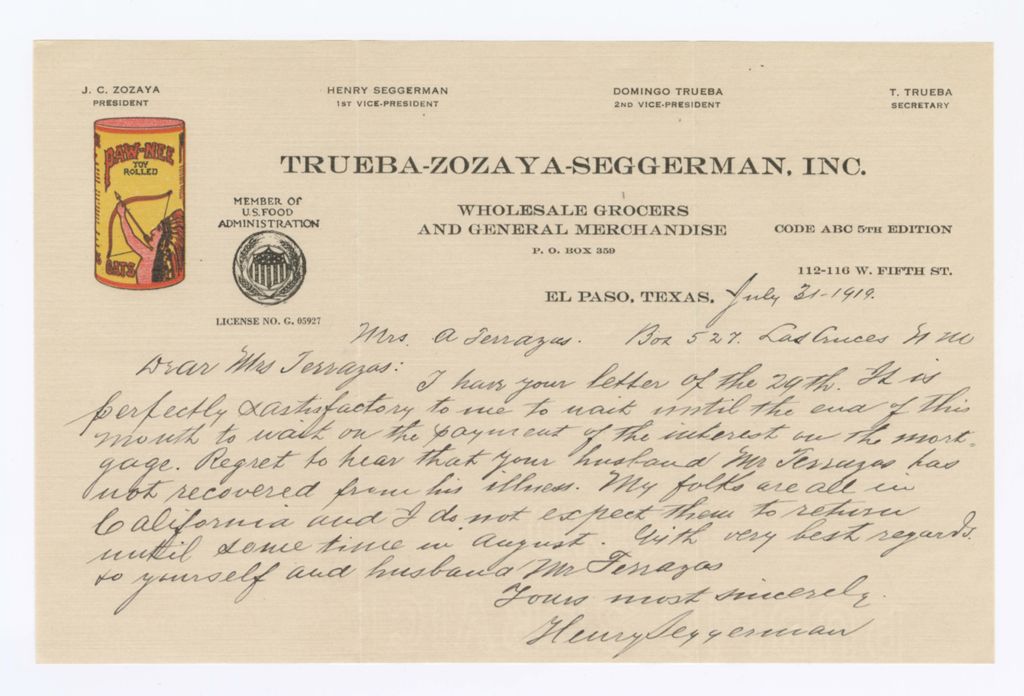 J. C. ZOZAYA
PRESIDENT
HENRY SEGGERMAN
1ST VICE-PRESIDENT
DOMINGO TRUEBA
2ND VICE-PRESIDENT
T. TRUEBA
SECRETARY
PAW-NEE
TOY
ROLLED
OATS
TRUEBA-ZOZAYA-SEGGERMAN, INC.
MEMBER OF
U.S. FOOD
ADMINISTRATION
LICENSE NO. G. 05927
WHOLESALE GROCERS
AND GENERAL MERCHANDISE
P. O. BOX 359
CODE ABC 5TH EDITION
112-116 W. FIFTH ST.
EL PASO, TEXAS, July 31-1919.
Mrs. A Terrazas. Box 527. Las Cruces N M
Dear Mrs Terrazas:
I have your letter of the 29th. It is
perfectly satisfactory to me to wait until the end of this
month to wait on the payment of the interest on the mort-
gage. Regret to hear that your husband Mr Terrazas has
not recovered from his illness. My folks are all in
California and I do not expect them to return
until some time in August. With very best regards
to yourself and husband Mr Terrazas
Yours most sincerely.
Henry Seggerman